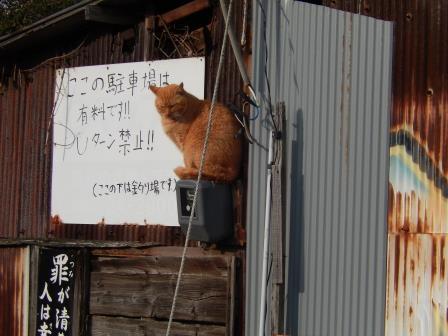 ここの駐車場は
有料です!!
Uターン禁止!!
(ここの下は釣り場です)
罪が清
つみ
人は幸